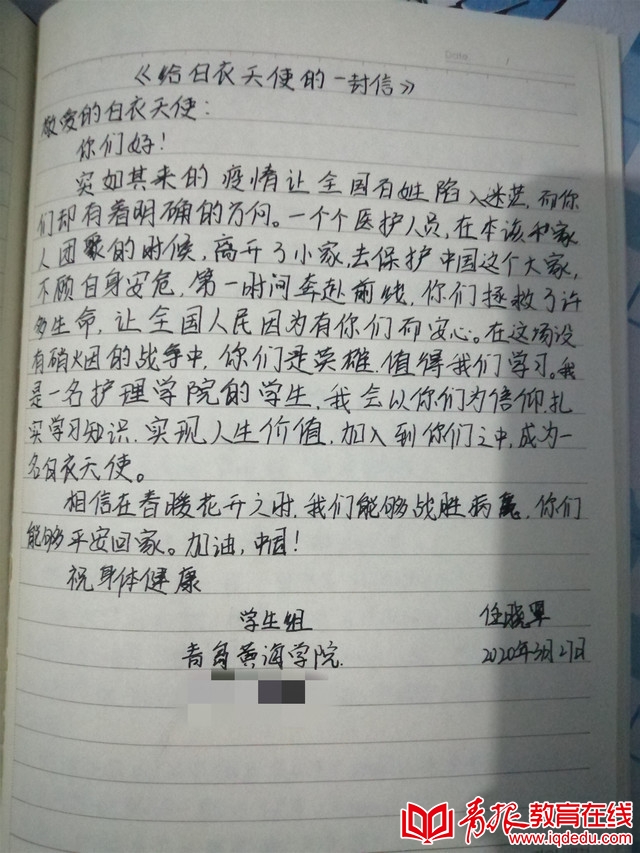 Date
《给白衣天使的一封信》
敬爱的白衣天使：
你们好！
突如其来的疫情让全国百姓陷入迷茫，而你
们却有着明确的方向。一个个医护人员，在本该和家
人团聚的时候，离开了小家，去保护中国这个大家，
不顾自身安危，第一时间奔赴前线，你们拯救了许
多生命，让全国人民因为有你们而安心。在这场没
有硝烟的战争中，你们是英雄，值得我们学习。我
是一名护理学院的学生，我会以你们为信仰，扎
实学习知识，实现人生价值，加入到你们之中，成为一
名白衣天使。
相信在春暖花开之时，我们能够战胜病魔，你们
能够平安回家。加油，中国！
祝身体健康
学生组 任晓
青岛黄海学院 2020年3月27日
青报教育在线
www.iqdedu.com